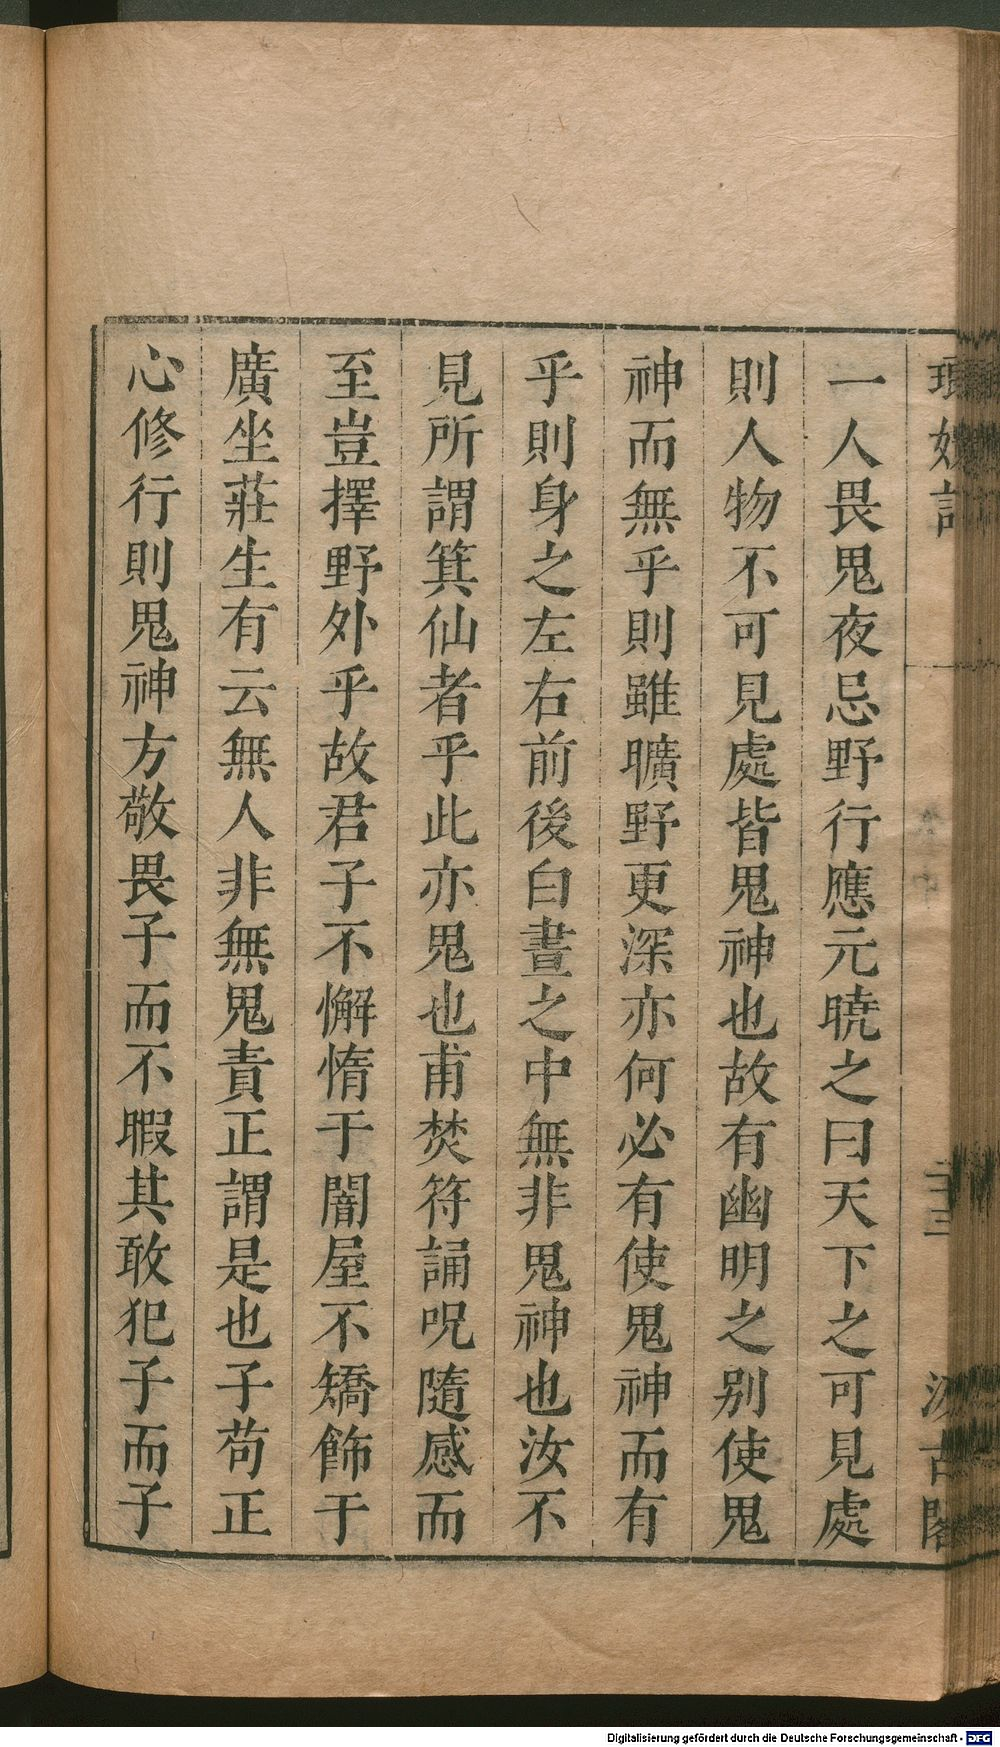 一人畏鬼夜忌野行應元曉之曰天下之可見處
則人物不可見處皆鬼神也故有幽明之别使鬼
神而無乎則雖曠野更深亦何必有使鬼神而有
乎則身之左右前後白晝之中無非鬼神也汝不
見所謂箕仙者乎此亦鬼也甫焚符誦呪隨感而
至豈擇野外乎故君子不懈惰于闇屋不矯飾于
廣坐莊生有云無人非無鬼責正謂是也子苟正
心修行則鬼神方敬畏子而不暇其敢犯子而子
Digitalisierung gefördert durch die Deutsche Forschungsgemeinschaft - DFG